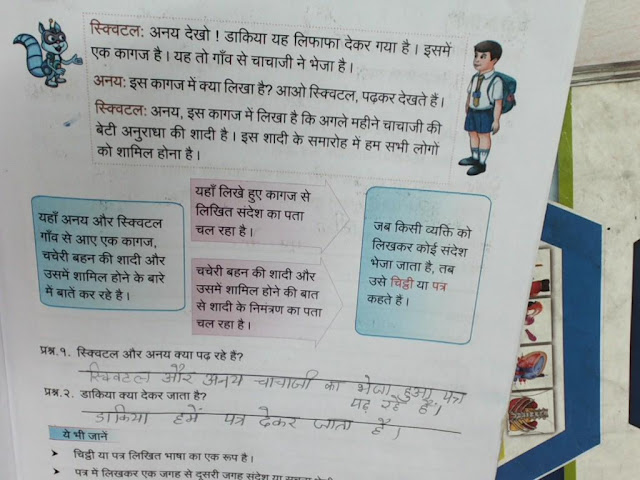 स्क्विटल: अनय देखो ! डाकिया यह लिफाफा देकर गया है। इसमें
एक कागज है। यह तो गाँव से चाचाजी ने भेजा है।
अनय: इस कागज में क्या लिखा है? आओ स्क्विटल, पढ़कर देखते हैं।
स्क्विटल: अनय, इस कागज में लिखा है कि अगले महीने चाचाजी की
बेटी अनुराधा की शादी है। इस शादी के समारोह में हम सभी लोगों
को शामिल होना है।
यहाँ अनय और स्क्विटल
गाँव से आए एक कागज,
चचेरी बहन की शादी और
उसमें शामिल होने के बारे
में बातें कर रहे है।
यहाँ लिखे हुए कागज से
लिखित संदेश का पता
चल रहा है।
चचेरी बहन की शादी और
उसमें शामिल होने की बात
से शादी के निमंत्रण का पता
चल रहा है।
जब किसी व्यक्ति को
लिखकर कोई संदेश
भेजा जाता है, तब
उसे चिट्ठी या पत्र
कहते हैं।
प्रश्न.१. स्क्विटल और अनय क्या पढ़ रहे हैं?
स्क्विटल और अनय चाचाजी का भेजा हुआ पत्र
पढ़ रहे हैं।
प्रश्न.२. डाकिया क्या देकर जाता है?
डाकिया हमें पत्र देकर जाता है।
ये भी जानें
➤ चिट्ठी या पत्र लिखित भाषा का एक रूप है।
➤ पत्र में लिखकर एक जगह से दूसरी जगह संदेश या